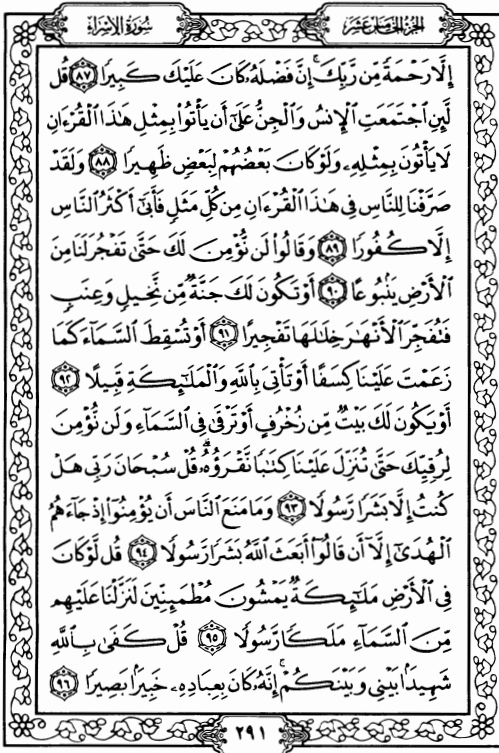 سُورَةُ الإِسْرَاءِ الجُزْءُ الخَامِسَ عَشَرَ
إِلَّا رَحْمَةً مِّن رَّبِّكَ ۚ إِنَّ فَضْلَهُۥ كَانَ عَلَيْكَ كَبِيرًا ۝٨٧ قُل
لَّئِنِ ٱجْتَمَعَتِ ٱلْإِنسُ وَٱلْجِنُّ عَلَىٰٓ أَن يَأْتُوا۟ بِمِثْلِ هَـٰذَا ٱلْقُرْءَانِ
لَا يَأْتُونَ بِمِثْلِهِۦ وَلَوْ كَانَ بَعْضُهُمْ لِبَعْضٍ ظَهِيرًا ۝٨٨ وَلَقَدْ
صَرَّفْنَا لِلنَّاسِ فِى هَـٰذَا ٱلْقُرْءَانِ مِن كُلِّ مَثَلٍ فَأَبَىٰٓ أَكْثَرُ ٱلنَّاسِ
إِلَّا كُفُورًا ۝٨٩ وَقَالُوا۟ لَن نُّؤْمِنَ لَكَ حَتَّىٰ تَفْجُرَ لَنَا مِنَ
ٱلْأَرْضِ يَنۢبُوعًا ۝٩٠ أَوْ تَكُونَ لَكَ جَنَّةٌ مِّن نَّخِيلٍ وَعِنَبٍ
فَتُفَجِّرَ ٱلْأَنْهَـٰرَ خِلَـٰلَهَا تَفْجِيرًا ۝٩١ أَوْ تُسْقِطَ ٱلسَّمَآءَ كَمَا
زَعَمْتَ عَلَيْنَا كِسَفًا أَوْ تَأْتِىَ بِٱللَّهِ وَٱلْمَلَـٰٓئِكَةِ قَبِيلًا ۝٩٢
أَوْ يَكُونَ لَكَ بَيْتٌ مِّن زُخْرُفٍ أَوْ تَرْقَىٰ فِى ٱلسَّمَآءِ وَلَن نُّؤْمِنَ
لِرُقِيِّكَ حَتَّىٰ تُنَزِّلَ عَلَيْنَا كِتَـٰبًا نَّقْرَؤُهُۥ ۗ قُلْ سُبْحَانَ رَبِّى هَلْ
كُنتُ إِلَّا بَشَرًا رَّسُولًا ۝٩٣ وَمَا مَنَعَ ٱلنَّاسَ أَن يُؤْمِنُوٓا۟ إِذْ جَآءَهُمُ
ٱلْهُدَىٰٓ إِلَّآ أَن قَالُوٓا۟ أَبَعَثَ ٱللَّهُ بَشَرًا رَّسُولًا ۝٩٤ قُل لَّوْ كَانَ
فِى ٱلْأَرْضِ مَلَـٰٓئِكَةٌ يَمْشُونَ مُطْمَئِنِّينَ لَنَزَّلْنَا عَلَيْهِم
مِّنَ ٱلسَّمَآءِ مَلَكًا رَّسُولًا ۝٩٥ قُلْ كَفَىٰ بِٱللَّهِ
شَهِيدًۢا بَيْنِى وَبَيْنَكُمْ ۚ إِنَّهُۥ كَانَ بِعِبَادِهِۦ خَبِيرًۢا بَصِيرًا ۝٩٦
٢٩١